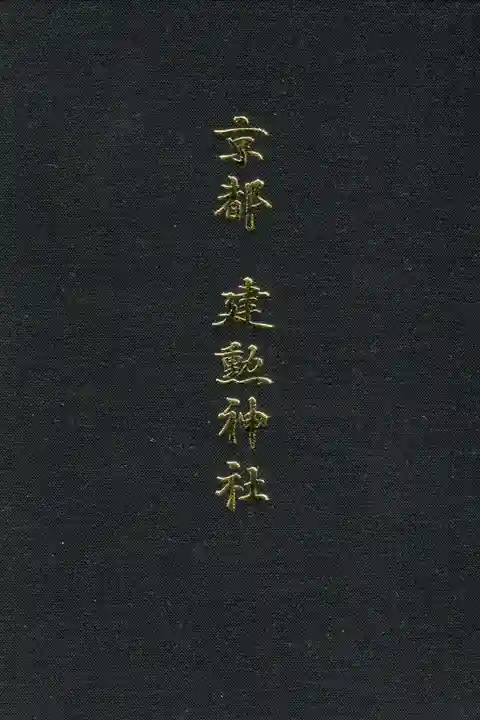 京都 建勲神社